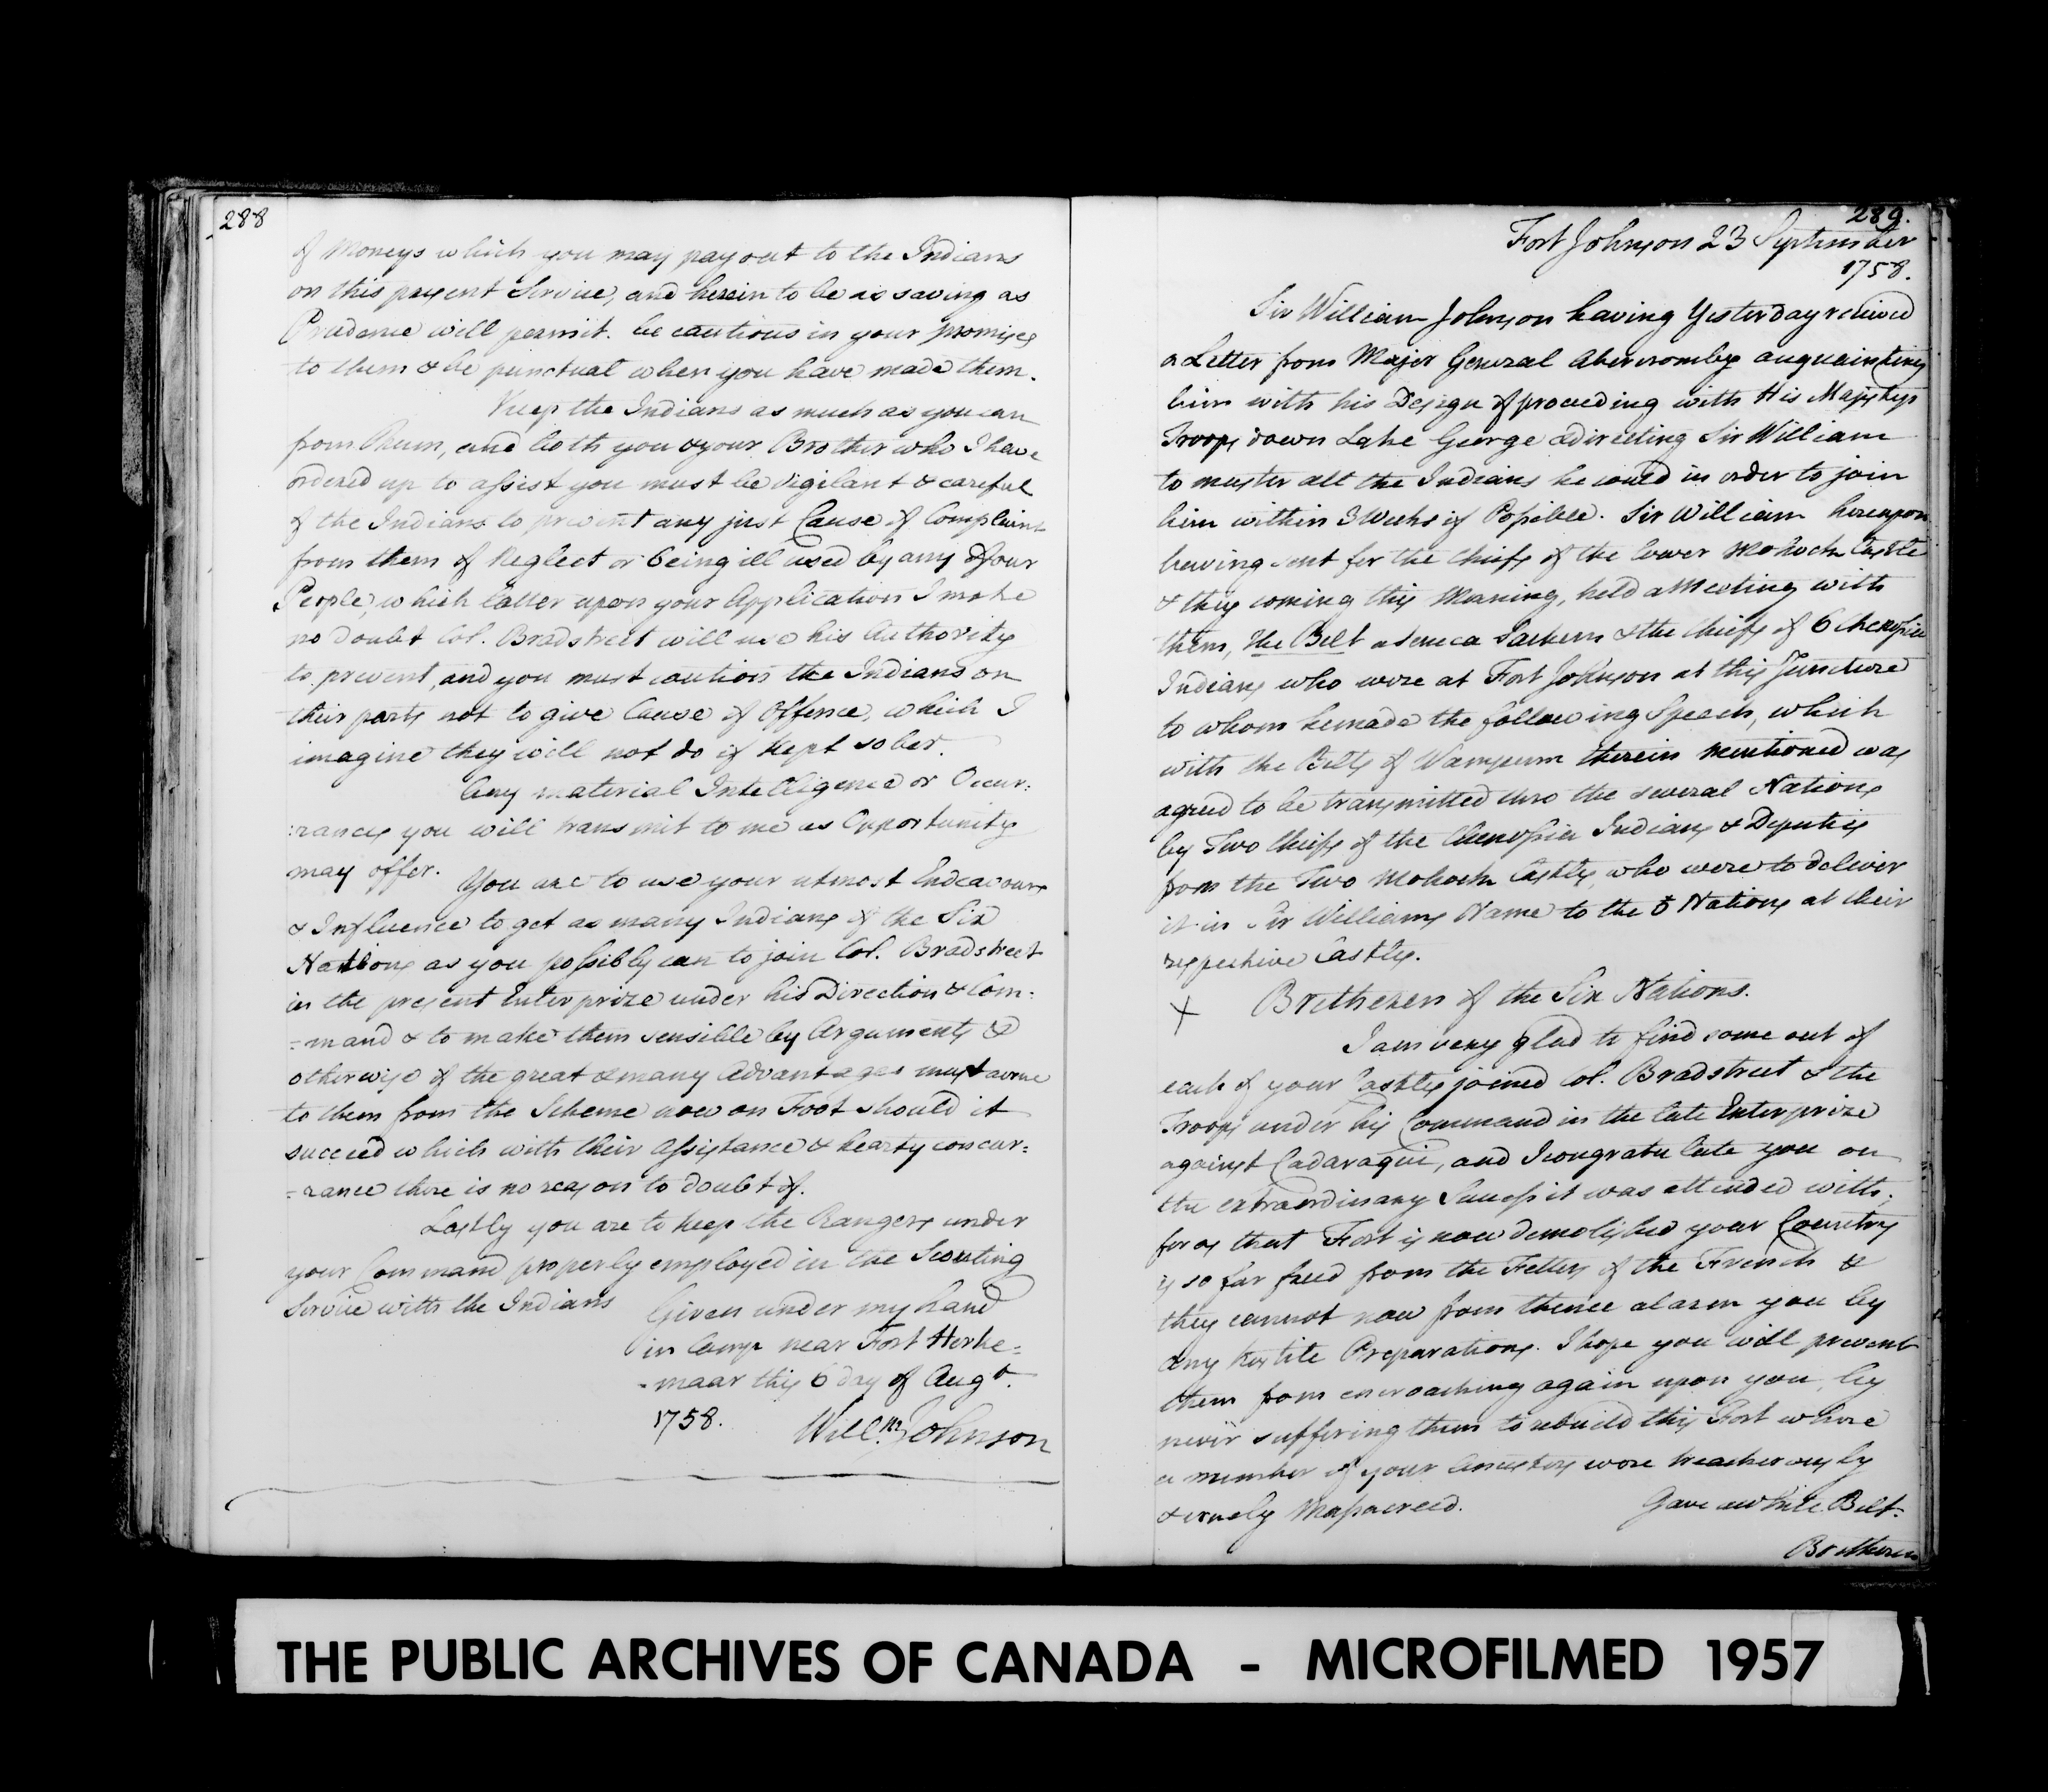 288
of Moneys which you may pay out to the Indians
on this present Service, and herein to be as saving as
Prudence will permit. be cautious in your promises
to them & be punctual when you have made them.
Keep the Indians as much as you can
from Rum, and both you & your Brother who I have
ordered up to assist you must be vigilant & careful
of the Indians to prevent any just Cause of Complaint
from them of Neglect or being ill used by any of our
People, which latter upon your Application I make
no doubt Col. Bradstreet will use his Authority
to prevent, and you must caution the Indians on
their parts not to give Cause of Offence, which I
imagine they will not do if kept sober.
Any material Intelligence or Occur:
:rances you will transmit to me as Opportunity
may offer.
You are to use your utmost Endeavours
& Influence to get as many Indians of the Six
Nations as you possibly can to join Col. Bradstreet
in the present Enterprize under his Direction & Com:
=mand & to make them sensible by Arguments &
otherwise of the great & many Advantages must acrue
to them from the Scheme now on Foot should it
succeed which with their Assistance & hearty concur:
=rance there is no reason to doubt of.
Lastly you are to keep the Rangers under
your Command properly employed in the Scouting
Service with the Indians
Given under my hand
in Camp near Fort Herke=
-maar this 6 day of Augt.
1758.
Willm. Johnson
289.
Fort Johnson 23 September
1758.
Sir William Johnson having Yesterday recieved
a Letter from Major General Abercromby acquainting
him with his Design of proceeding with His Majestys
Troops down Lake George & directing Sir William
to muster all the Indians he could in order to join
him within 3 Weeks if Possible. Sir William hereupon
having sent for the Chiefs of the lower Mohock Castle
& they coming this Morning, held a Meeting with
them, the Belt a Seneca Sachem & the Chiefs of 6 Chenossia
Indians who were at Fort Johnson at this Juncture
to whom he made the following Speech, which
with the Belts of Wampum therein mentioned was
agreed to be transmitted thro the several Nations
by Two Chiefs of the Chenossia Indians & Deputies
from the Two Mohock Castles, who were to deliver
it in Sir Williams Name to the 5 Nations at their
respective Castles.
X Bretheren of the Six Nations.
I am very glad to find some out of
each of your Castles joined Col. Bradstreet & the
Troops under his Command in the late Enterprize
against Cadaraqui, and I congratulate you on
the extraordinary Success it was attended with;
for as that Fort is now demolished your Country
is so far freed from the Fetters of the French &
they cannot now from thence alarm you by
any hostile Preparations. I hope you will prevent
them from encroaching again upon you, by
never suffering them to rebuild this Fort where
a number of your Ancestors were treacherously
& cruely Massacreed.
Gave a white Belt.
Bretheren
THE PUBLIC ARCHIVES OF CANADA - MICROFILMED 1957